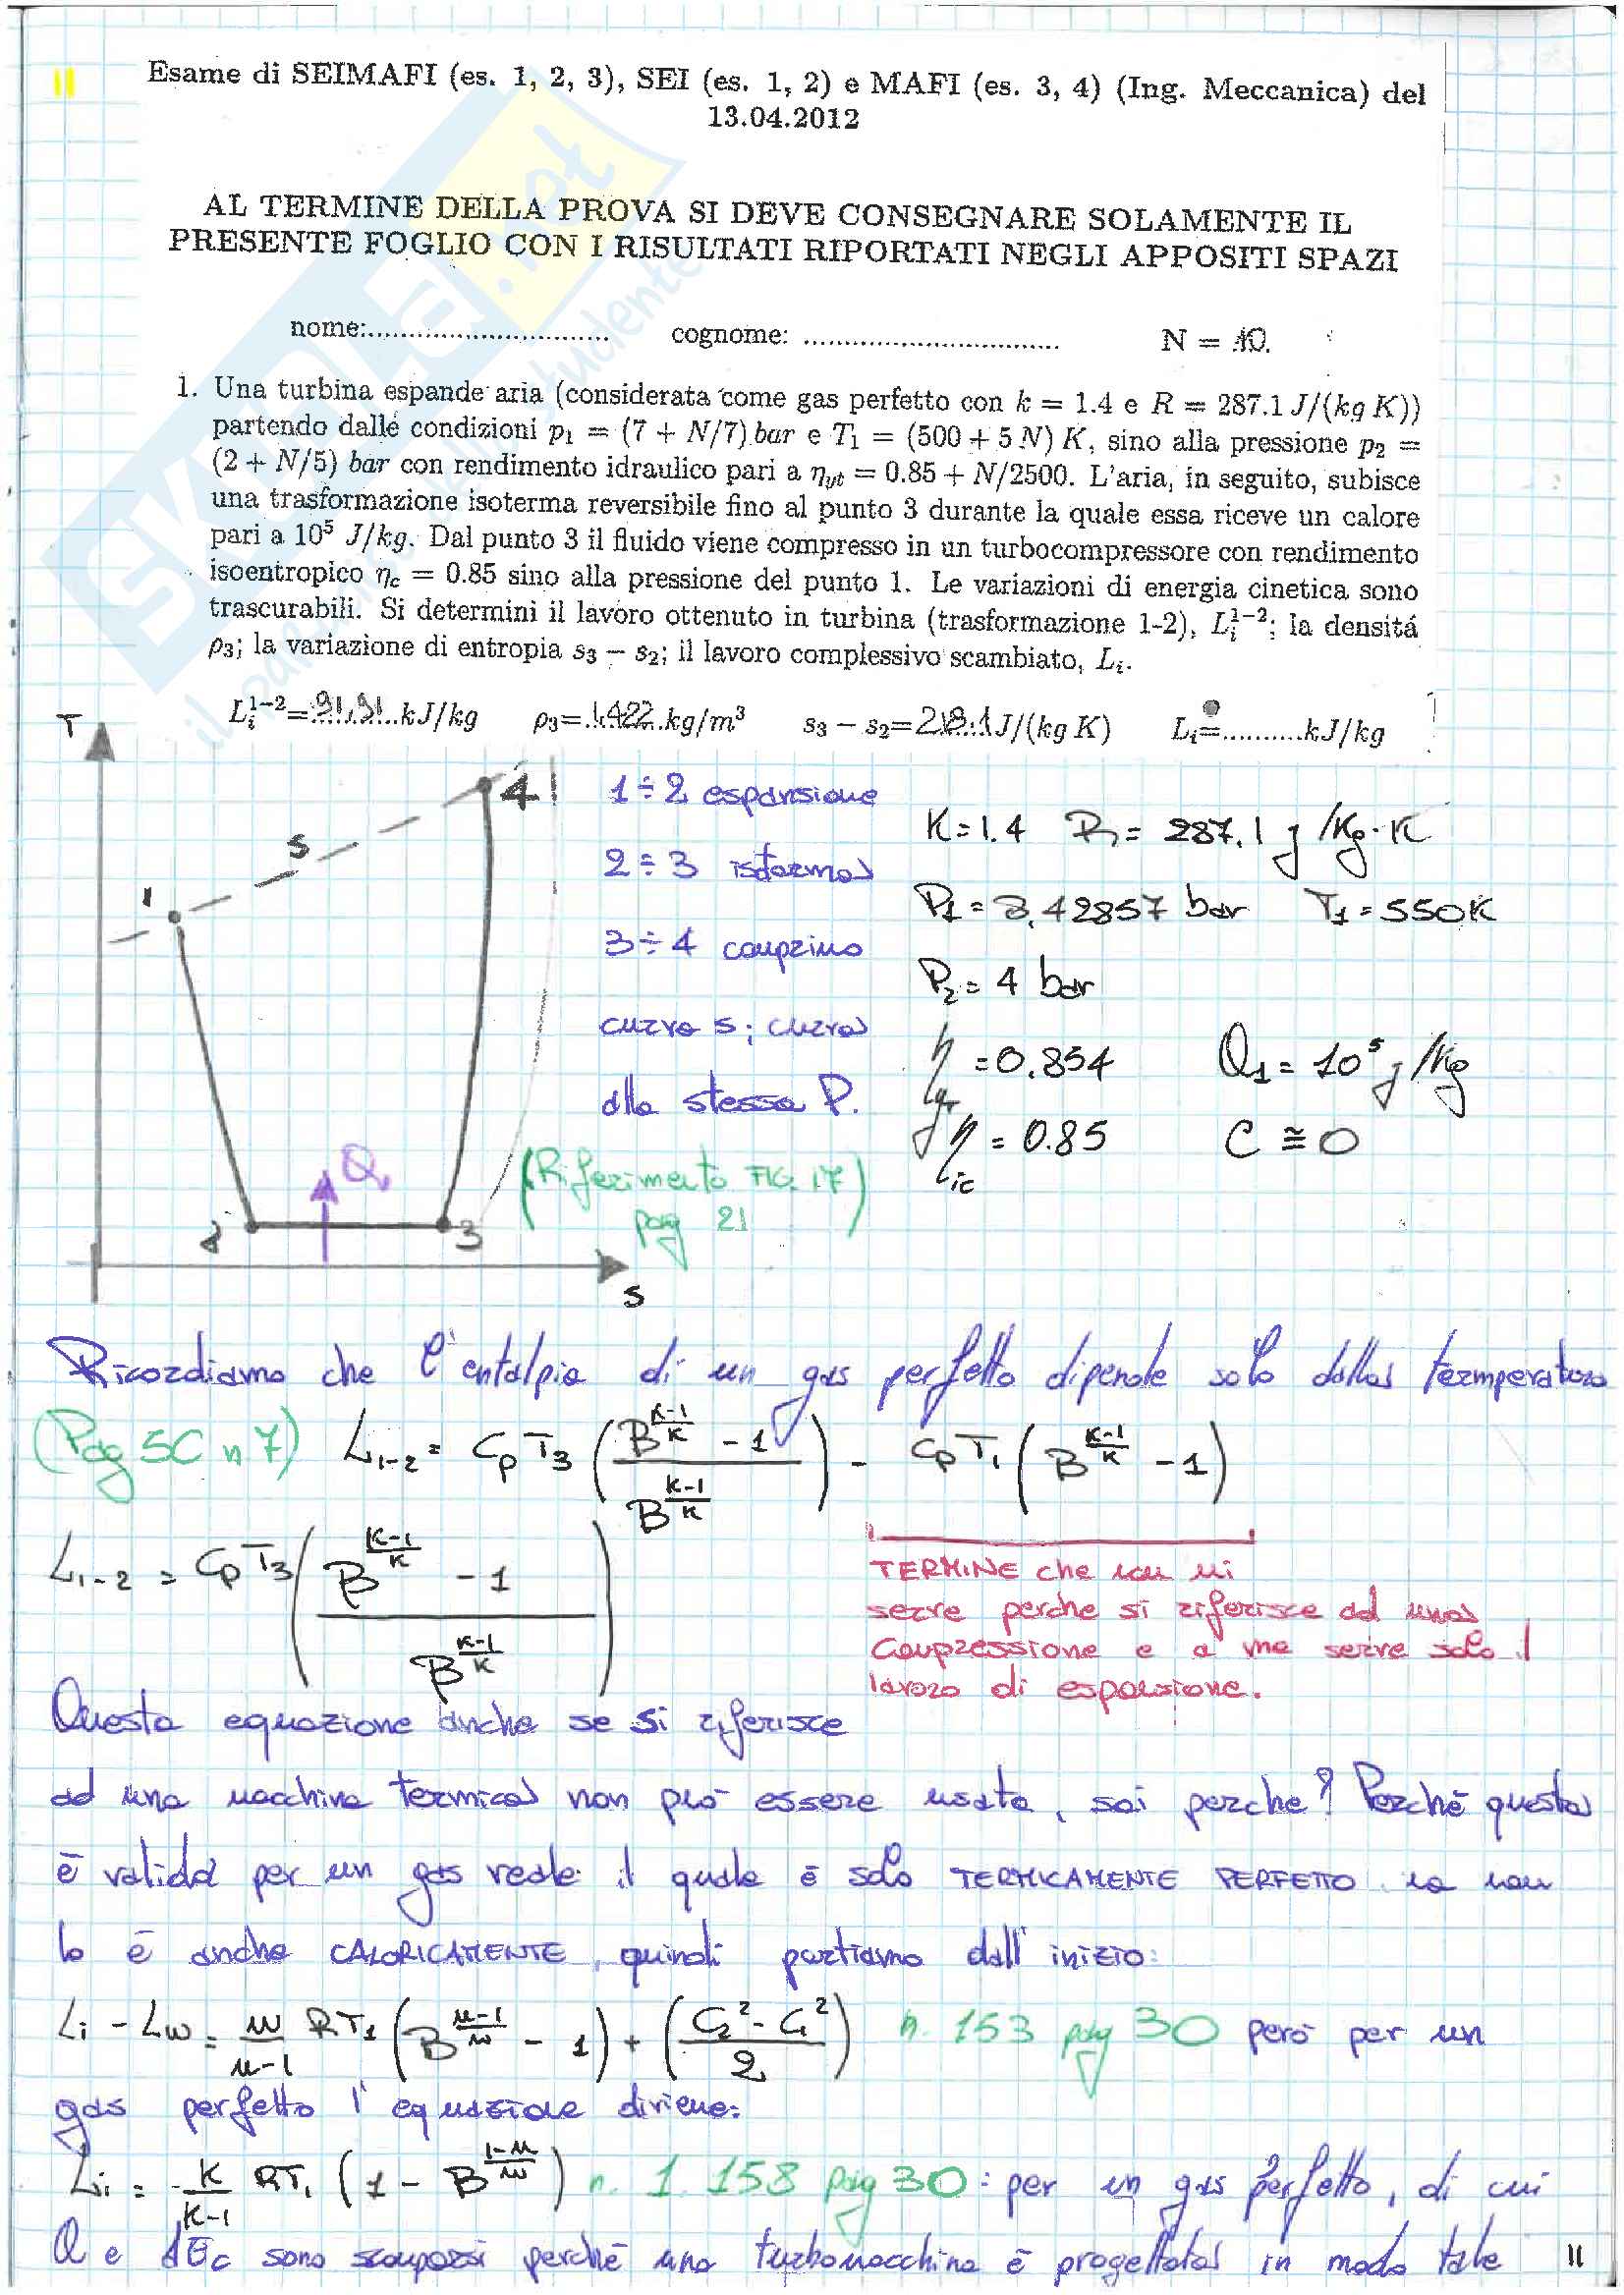 11
Esame di SEIMAFI (es. 1, 2, 3), SEI (es. 1, 2) e MAFI (es. 3, 4) (Ing. Meccanica) del
13.04.2012
AL TERMINE DELLA PROVA SI DEVE CONSEGNARE SOLAMENTE IL
PRESENTE FOGLIO CON I RISULTATI RIPORTATI NEGLI APPOSITI SPAZI
nome:.............................. cognome: ................................ N = 10.
1. Una turbina espande aria (considerata come gas perfetto con k = 1.4 e R = 287.1 J/(kg K))
partendo dalle condizioni p₁ = (7 + N/7) bar e T₁ = (500 + 5 N) K, sino alla pressione p₂ =
(2 + N/5) bar con rendimento idraulico pari a ηyt = 0.85 + N/2500. L'aria, in seguito, subisce
una trasformazione isoterma reversibile fino al punto 3 durante la quale essa riceve un calore
pari a 10⁵ J/kg. Dal punto 3 il fluido viene compresso in un turbocompressore con rendimento
isoentropico ηc = 0.85 sino alla pressione del punto 1. Le variazioni di energia cinetica sono
trascurabili. Si determini il lavoro ottenuto in turbina (trasformazione 1-2), Lᵢ¹⁻²; la densitá
ρ₃; la variazione di entropia s₃ − s₂; il lavoro complessivo scambiato, Lᵢ.
Lᵢ¹⁻²=91.91...kJ/kg ρ₃=1.422..kg/m³ s₃ − s₂=218.1J/(kg K) Lᵢ=..........kJ/kg
T
4
S
1
2
3
Q
s
1÷2 espansione
2÷3 isoterma
3÷4 comprimo
curva s; curva
alla stessa P.
(Riferimento FIG. 17
pag 21)
K=1.4 R₁= 287.1 J/Kg·K
P₁=8,42857 bar T₁=550K
P₂= 4 bar
η =0.854 Q₁= 10⁵ J/Kg
η = 0.85 C ≅ 0
ic
Ricordiamo che l'entalpia di un gas perfetto dipende solo dalla temperatura
(Pag 5C n 7) L₁₋₂= CpT₃ ((B^((K-1)/K) -1)/B^((K-1)/K)) - CpT₁(B^((K-1)/K) -1)
L₁₋₂= CpT₃ ((B^((K-1)/K) -1)/B^((K-1)/K))
TERMINE che non mi
serve perche si riferisce ad una
compressione e a me serve solo il
lavoro di espansione.
Questa equazione anche se si riferisce
ad una macchina termica non può essere usata, sai perche? Perchè questa
è valida per un gas reale il quale è solo TERMICAMENTE PERFETTO ma non
lo è anche CALORICAMENTE, quindi partiamo dall'inizio:
Li - Lw = m/(m-1) RT₁ (B^((m-1)/m) - 1) + ((C₂²-C₁²)/2) n. 153 pag 30 però per un
gas perfetto l'equazione diviene:
Li = K/(K-1) RT₁ (1 - B^((1-m)/m)) n. 1.158 pag 30: per un gas perfetto, di cui
Q e dEc sono scomparsi perchè una turbomacchina è progettata in modo tale
11